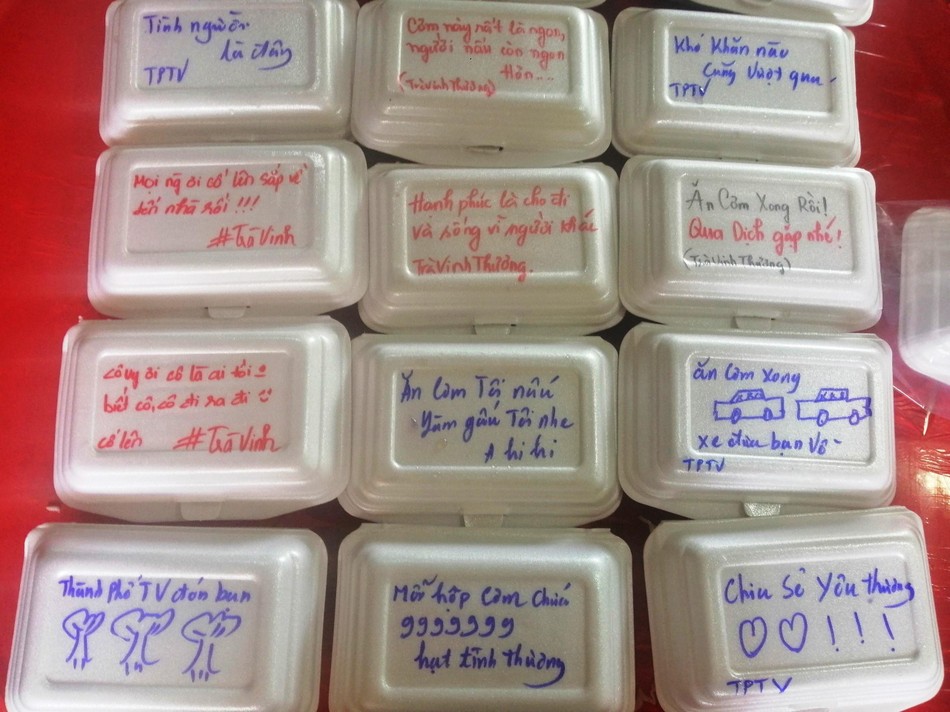 Tình người
là đây
TPTV
Cơm này rất là ngon,
người nấu còn ngon
Hơn...
(Trà Vinh Thương)
Khó Khăn nào
cũng vượt qua
TPTV
Mọi ng ơi cố lên sắp về
đến nhà rồi !!!
#Trà Vinh
Hạnh phúc là cho đi
và sống vì người khác
Trà Vinh Thương.
Ăn Cơm Xong Rồi!
Qua Dịch gặp nhé!
(Trà Vinh Thương)
côvy ơi cô là ai tôi
biết cô, cô đi ra đi
cố lên #Trà Vinh
Ăn Cơm Tôi nấu
Làm gấu Tôi nhe
A hi hi
ăn Cơm xong
xe đưa bạn Về
TPTV
Thành Phố TV đón bạn
Mỗi hộp Cơm Chứa
9999999
hạt tình thương
Chia Sẻ Yêu thương
!!!
TPTV